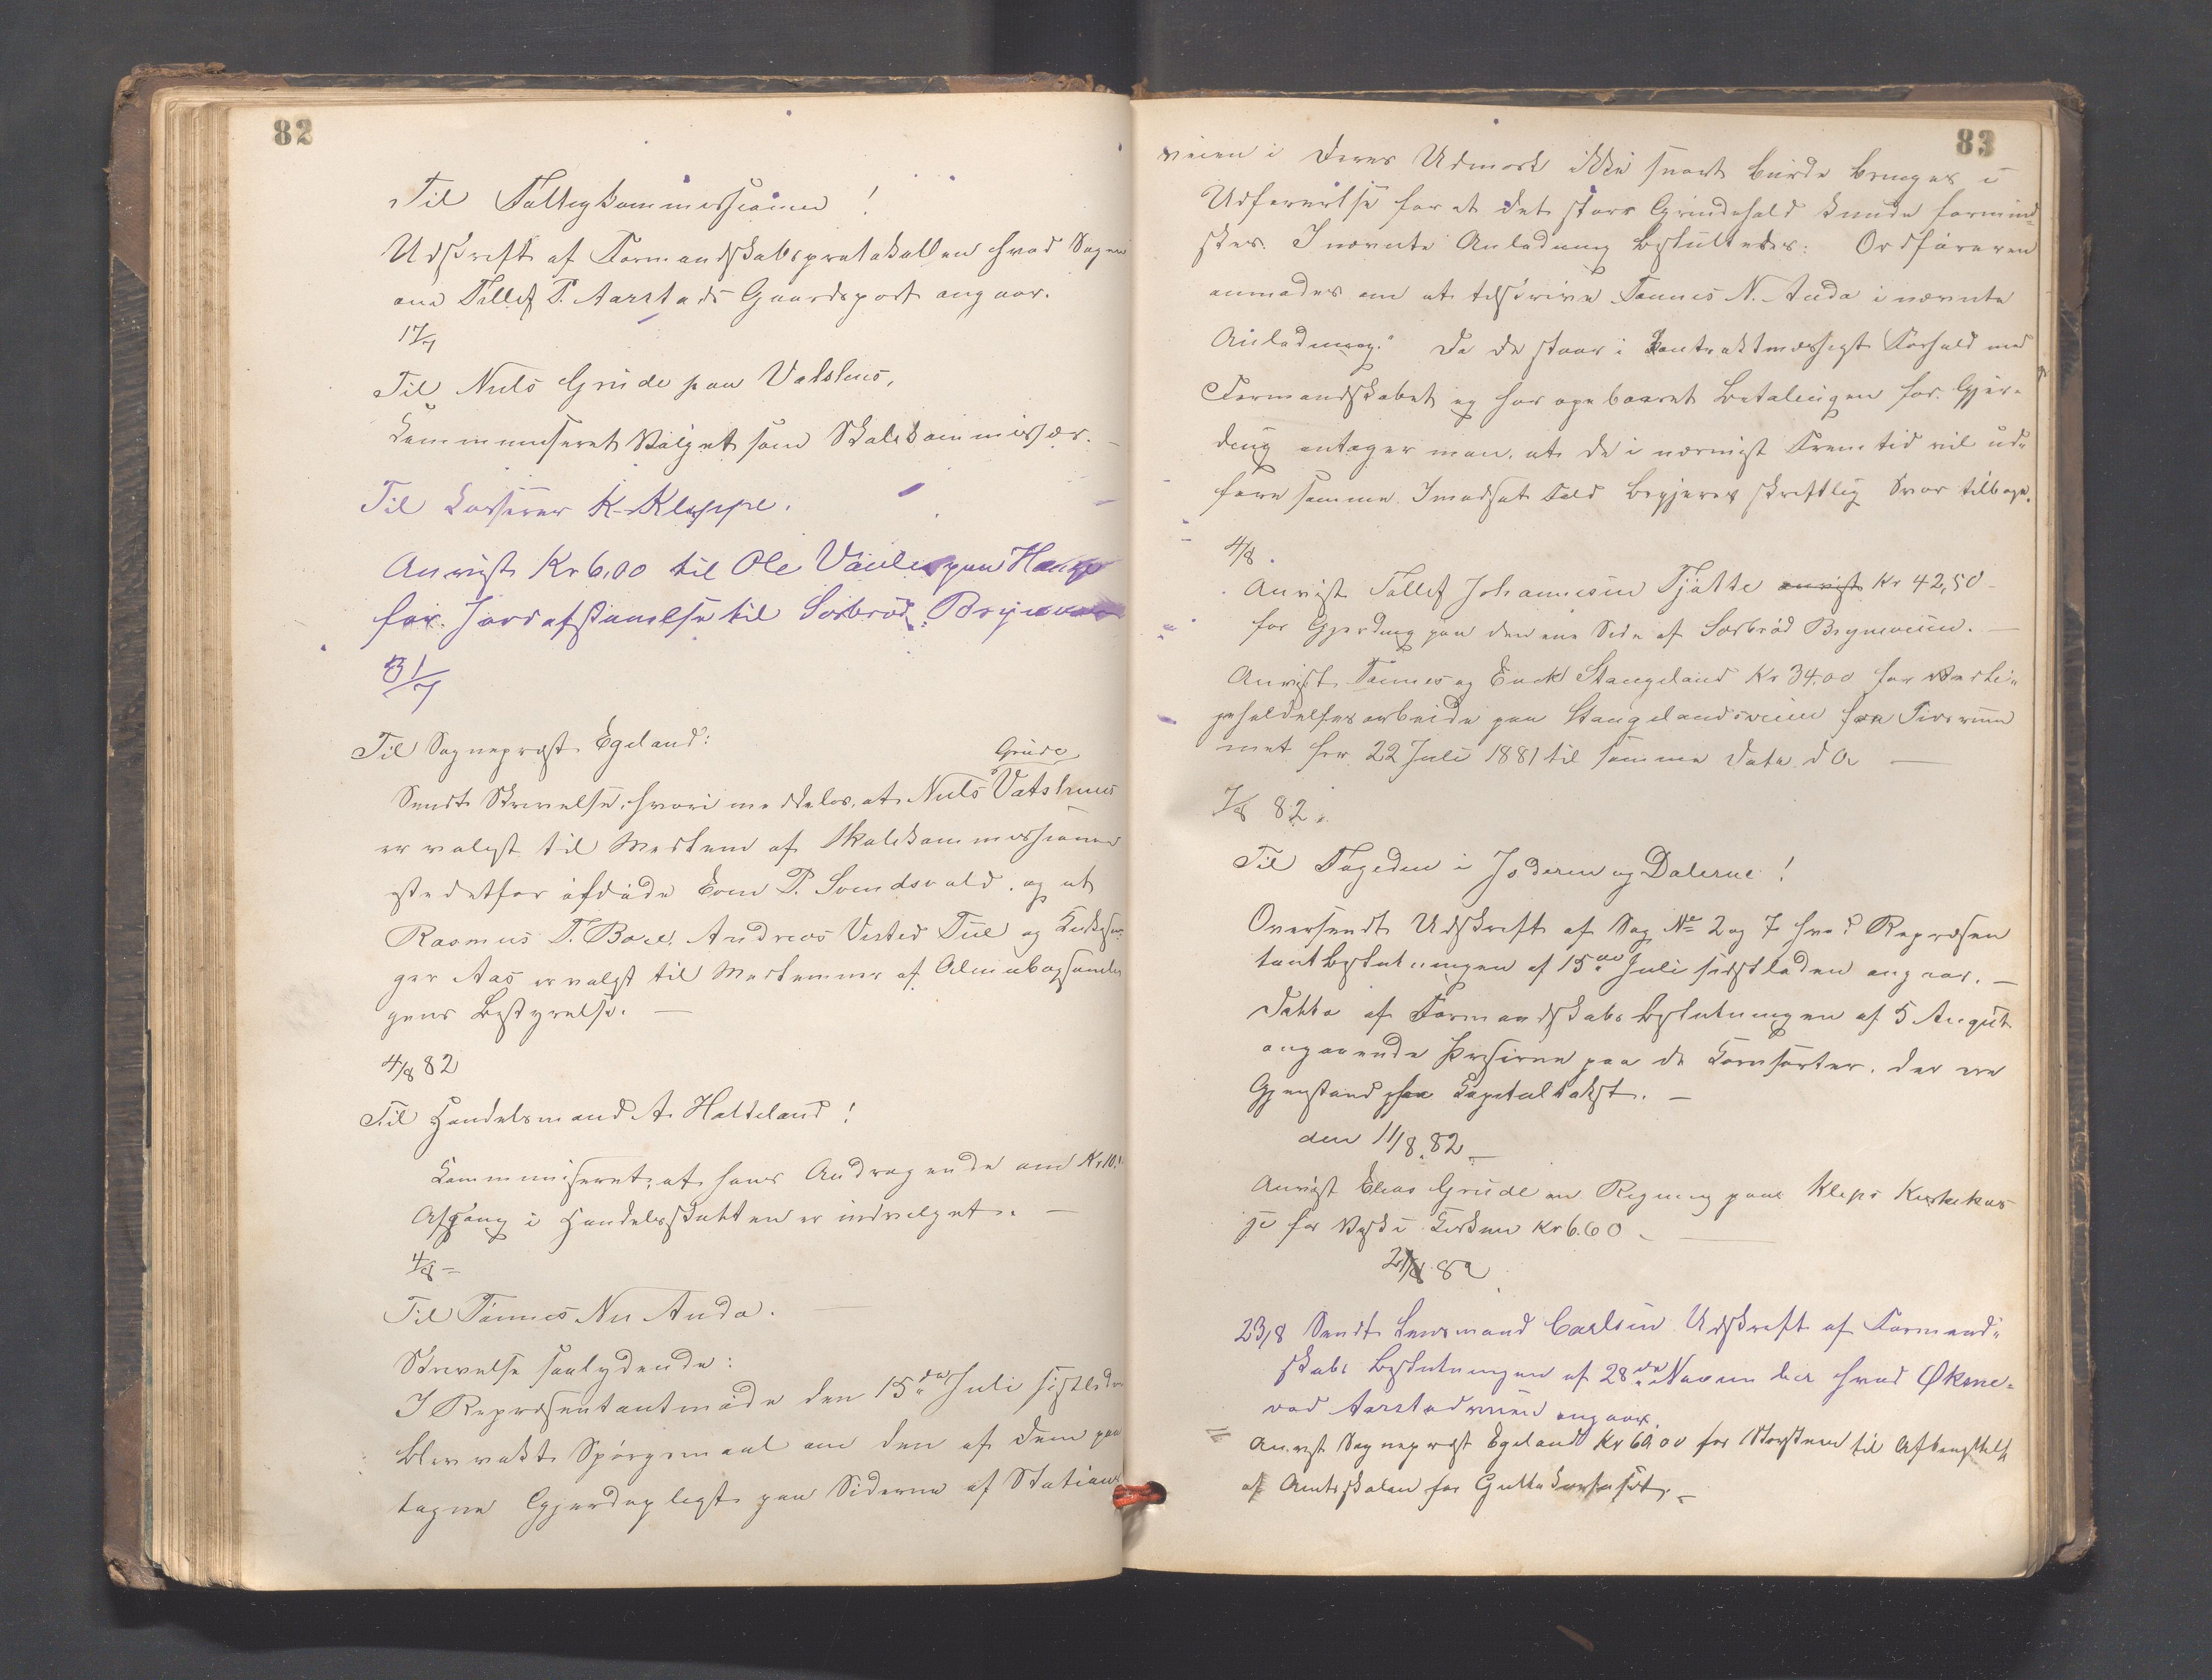 82
Til Fattigkommissionen!
Udskrift af Formandskabsprotokollen hvad Sagen
om Tollef T. Aarstads Gaardsport angaar.
17/7
Til Nils Grude paa Vatshus,
Kommuniseret Valget som Skolekommissær. —
Til Kasserer K. Kleppe.
Anvist Kr 6,00 til Ole Vaule paa Hauge
for Jordafstaaelse til Sørbrød. Bryneveien
31/7
Til Sogneprest Egeland:
Grude
Sendt Skrivelse, hvori meddeles, at Nils Vatshuus
er valgt til Medlem af Skolekommissionen
istedetfor afdøde Even T. Somdsvald, og at
Rasmus T. Bore, Andreas Vested Tue og Kirkesan-
ger Aas er valgt til Medlemmer af Almuebogsamlin
gens Bestyrelse. —
4/8 82
Til Handelsmand A. Hatteland!
Kommuniseret, at hans Andragende om Kr 10.
Afgang i Handelsskatten er indvilget. —
4/8 —
Til Tønnes Nil Anda. —
Skrivelse saalydende:
I Repræsentantmøde den 15de Juli sistleden
blev vakt Spørgsmaal om den af Dem paa
tagne Gjerdepligt paa Siderne af Stations
83
veien i Deres Udmark ikke snart burde bringes i
Udførelse for at det store Grindehold kunde formind-
skes. I nævnte Anledning besluttedes: Ordføreren
anmodes om at tilskrive Tønnes N. Anda i nævnte
Anledning." Da De staar i kontraktmæssigt Forhold med
Formandskabet og har oppebaaret Betalingen for Gjer-
ding antager man, at De i nærmest Fremtid vil ud-
føre samme. I modsat Fald begjæres skriftlig Svar tilbage.
4/8.
Anvist Tollef Johannesen Tjøtte anvist Kr 42,50 —
for Gjerding paa den ene Side af Sørbrød Bryneveien. —
Anvist Tønnes og Enok Stangeland Kr 34.00 for Vedli-
geholdelsesarbeide paa Stangelandsveien fra Tidsrum
met fra 22 Juli 1881 til samme Dato d A —
7/8 82.
Til Fogeden i Jæderen og Dalerne!
Oversendt Udskrift af Sag № 2 og 7 hvad Repræsen
tantbeslutningen af 15de Juli sidstleden angaar. —
Ditto af Formandskabs Beslutningen af 5 August
angaaende Priserne paa de Kornsorter, der ere
Gjenstand for Kapitaltakst. —
den 11/8. 82 —
Anvist Elias Grude en Regning paa Kleps Kirkekas
se for Vask i Kirken Kr 6.60. —
21/8 82
23/8 Sendt Lensmand Carlsen Udskrift af Formand-
skabs Beslutningen af 28de November hvad Øksne-
vad Aarstadveien angaar.
Anvist Sogneprest Egeland Kr 60.00 for til
af Amtsskolen for